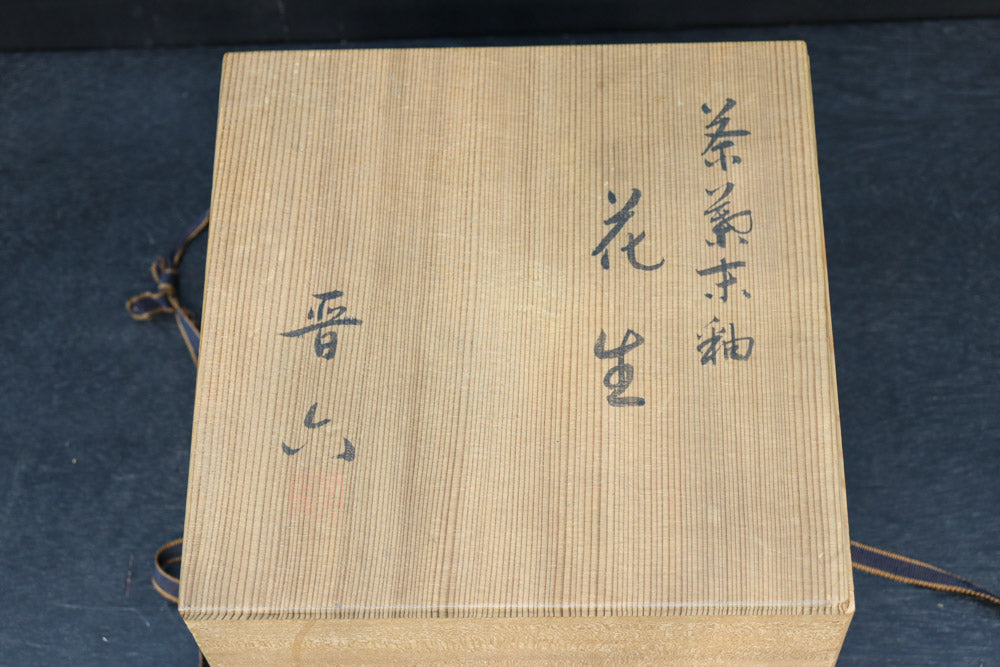 茶葉末釉
花生
晋六